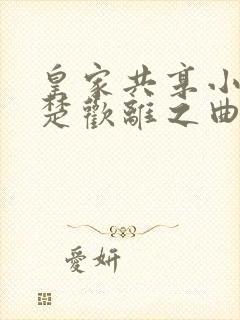 皇家共享小
楚歡離之曲
愛妍